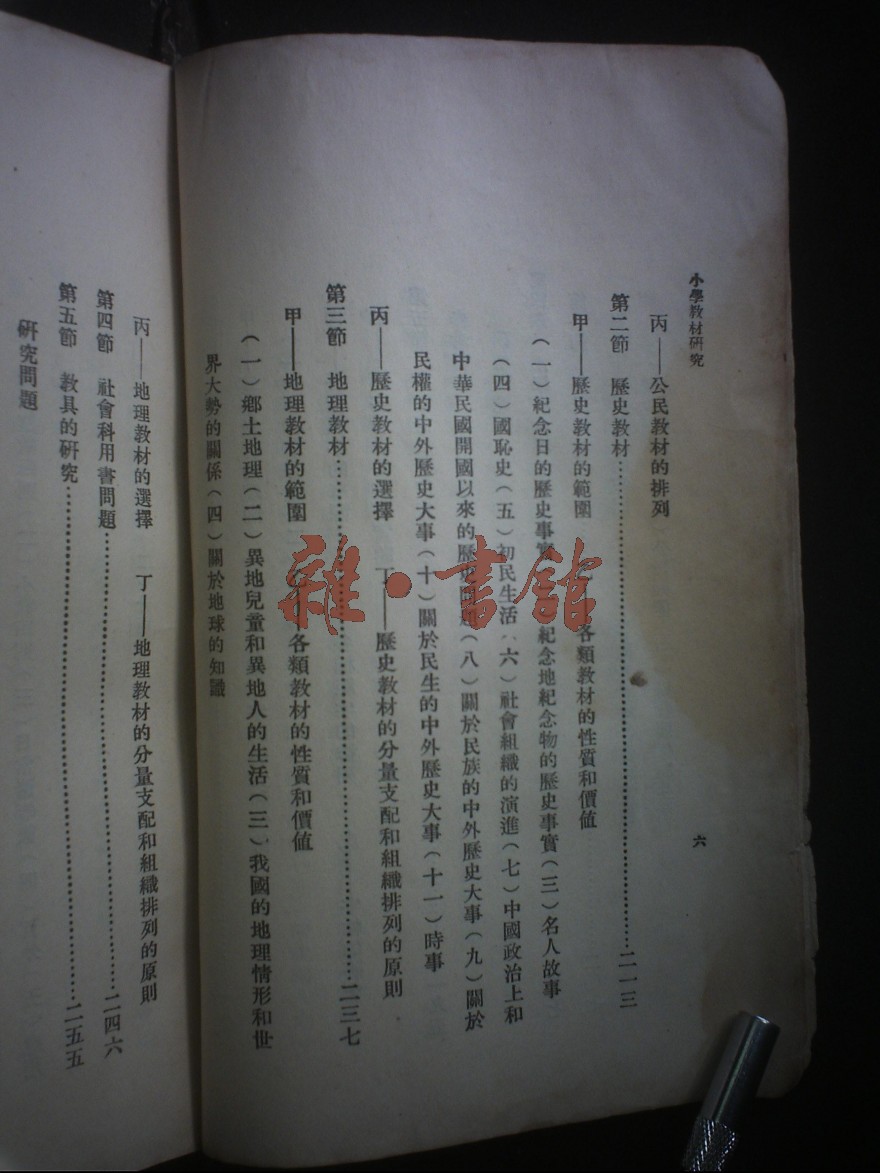 小學教材研究
六
丙——公民教材的排列
第二節 歷史教材……二一三
甲——歷史教材的範圍 各類教材的性質和價值
(一)紀念日的歷史事實 紀念地紀念物的歷史事實(三)名人故事
(四)國恥史(五)初民生活(六)社會組織的演進(七)中國政治上和
中華民國開國以來的歷史 (八)關於民族的中外歷史大事(九)關於
民權的中外歷史大事(十)關於民生的中外歷史大事(十一)時事
丙——歷史教材的選擇 丁——歷史教材的分量支配和組織排列的原則
第三節 地理教材……二三七
甲——地理教材的範圍 ——各類教材的性質和價值
(一)鄉土地理(二)異地兒童和異地人的生活(三)我國的地理情形和世
界大勢的關係(四)關於地球的知識
丙——地理教材的選擇 丁——地理教材的分量支配和組織排列的原則
第四節 社會科用書問題……二四六
第五節 教具的研究……二五五
研究問題
雜·書館